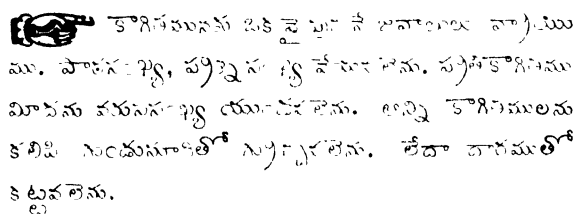 కాగితమునకు ఒక వైపున నే జవాబులు వ్రాయు
ము. పాఠసంఖ్య, ప్రశ్న సంఖ్య వేయవలెను. ప్రతికాగితము
మీదను వరుససంఖ్య యుండవలెను. అన్ని కాగితములను
కలిపి గుండుసూదితో గ్రుచ్చవలెను. లేదా దారముతో
కట్టవలెను.